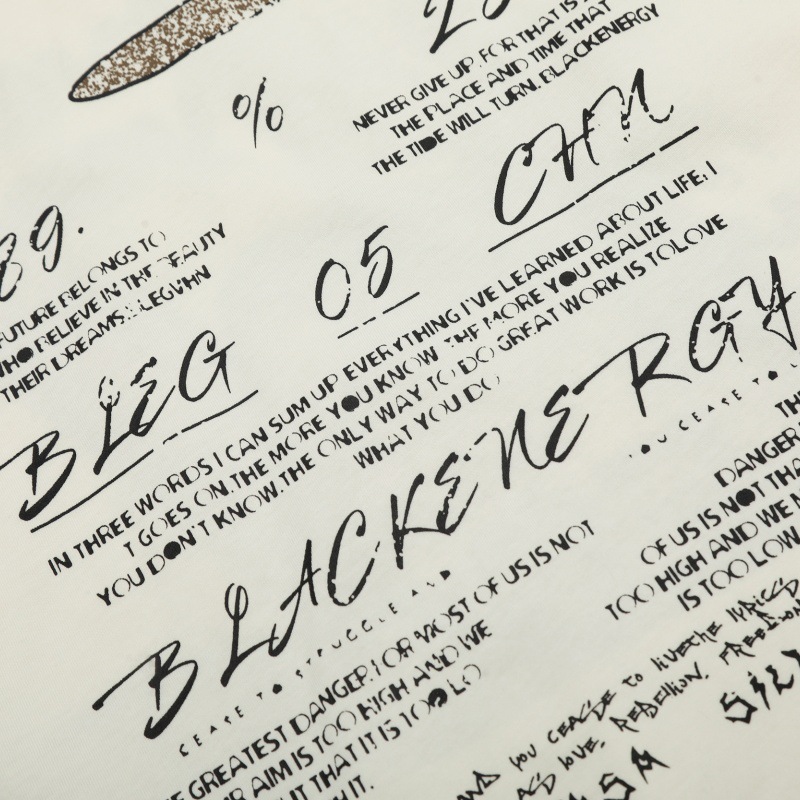 %
NEVER GIVE UP. FOR THAT IS
THE PLACE AND TIME THAT
THE TIDE WILL TURN. BLACKENERGY
CHN
89.
FUTURE BELONGS TO
WHO BELIEVE IN THE BEAUTY
THEIR DREAMS.
05
BLEG
IN THREE WORDS I CAN SUM UP EVERYTHING I'VE LEARNED ABOUT LIFE, I
T GOES ON.THE MORE YOU KNOW THE MORE YOU REALIZE
YOU DON'T KNOW.THE ONLY WAY TO DO GREAT WORK IS TOLOVE
WHAT YOU DO
BLACKENERGY
CEASE TO STRUGGLE AND
YOU CEASE TO
GREATEST DANGER.FOR MOST OF US IS NOT
AIM IS TOO HIGH AND WE
THAT IT IS TOO LO
IT.
DANGER
OF US IS NOT THA
TOO HIGH AND WE
IS TOO LOW
AND YOU CEASE TO LIVETHE LYRICS
LOVE, REBELLION, FREEDOM